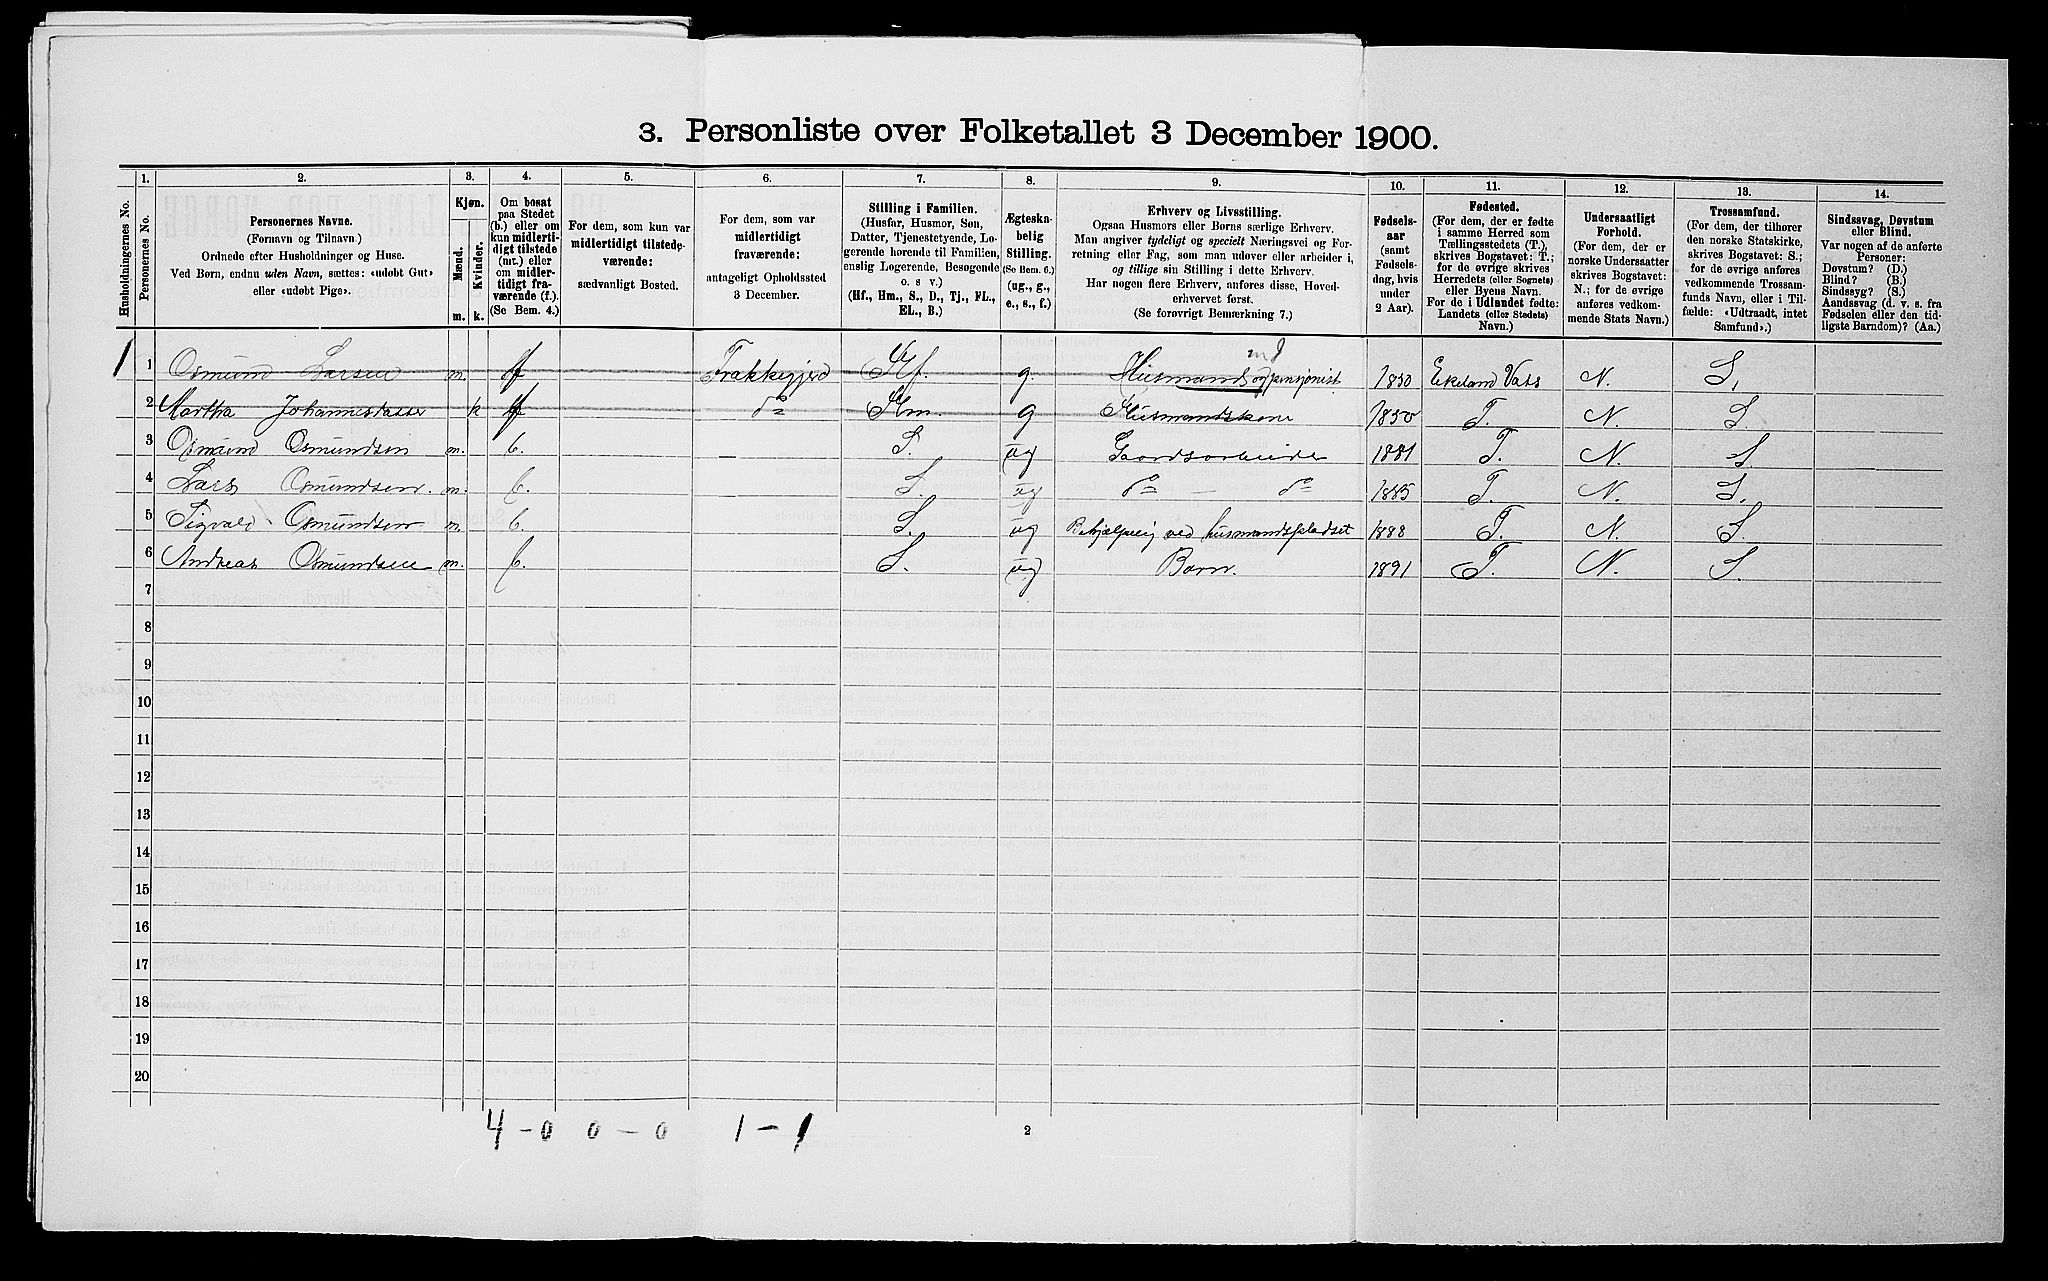 3. Personliste over Folketallet 3 December 1900.
1. 2. 3. 4. 5. 6. 7. 8. 9. 10. 11. 12. 13. 14.
Husholdningernes No.
Personernes No.
Personernes Navne.
(Fornavn og Tilnavn)
Ordnede efter Husholdninger og Huse.
Ved Børn, endnu uden Navn, sættes: «udøbt Gut»
eller «udøbt Pige».
Kjøn.
Mænd.
Kvinder.
m. k.
Om bosat
paa Stedet
(b.) eller om
kun midlerti-
digt tilstede
(mt.) eller
om midler-
tidigt fra-
værende (f.).
(Se Bem. 4.)
For dem, som kun var
midlertidigt tilstede-
værende:
sædvanligt Bosted.
For dem, som var
midlertidigt
fraværende:
antageligt Opholdssted
3 December.
Stilling i Familien.
(Husfar, Husmor, Søn,
Datter, Tjenestetyende, Lo-
gerende hørende til Familien,
enslig Logerende, Besøgende
o. s v.)
(Hf., Hm., S., D., Tj., FL.,
EL., B.)
Ægteska-
belig
Stilling.
(Se Bem. 6.)
(ug., g.,
e., s., f.)
Erhverv og Livsstilling.
Ogsaa Husmors eller Børns særlige Erhverv.
Man angiver tydeligt og specielt Næringsvei og For-
retning eller Fag, som man udøver eller arbeider i,
og tillige sin Stilling i dette Erhverv.
Har nogen flere Erhverv, anføres disse, Hoved-
erhvervet først.
(Se forøvrigt Bemærkning 7.)
Fødsels-
aar
(samt
Fødsels-
dag, hvis
under
2 Aar).
Fødested.
(For dem, der er fødte
i samme Herred som
Tællingsstedets (T.),
skrives Bogstavet: T.;
for de øvrige skrives
Herredets (eller Sognets)
eller Byens Navn.
For de i Udlandet fødte:
Landets (eller Stedets)
Navn.)
Undersaatligt
Forhold.
(For dem, der er
norske Undersaatter
skrives Bogstavet:
N.; for de øvrige
anføres vedkom-
mende Stats Navn.)
Trossamfund.
(For dem, der tilhører
den norske Statskirke,
skrives Bogstavet: S.;
for de øvrige anføres
vedkommende Trossam-
funds Navn, eller i Til-
fælde: «Udtraadt, intet
Samfund».)
Sindssvag, Døvstum
eller Blind.
Var nogen af de anførte
Personer:
Døvstum? (D.)
Blind? (B.)
Sindssyg? (S.)
Aandssvag (d. v. s. fra
Fødselen eller den tid-
ligste Barndom)? (Aa.)
1 1 Osmund Larsen m. f Frakkegjerd Hf. g. Husmand og pensjonist 1830 Eikeland Vats N. S.
2 Martha Johannesdatter k f do Hm. g Husmandskone 1850 T. N. S
3 Osmund Osmundsen m. b. S. ug Gaardsarbeider 1881 T. N. S
4 Lars Osmundsen. m. b. S. ug do — do 1885 T. N. S.
5 Sigvald Osmundsen m. b. S. ug Behjælpelig ved husmandspladset 1888 T. N. S.
6 Andreas Osmundsen m. b. S. ug Barn. 1891 T. N. S.
7
8
9
10
11
12
13
14
15
16
17
18
19
20
4 - 0 0 - 0 1 - 1
2